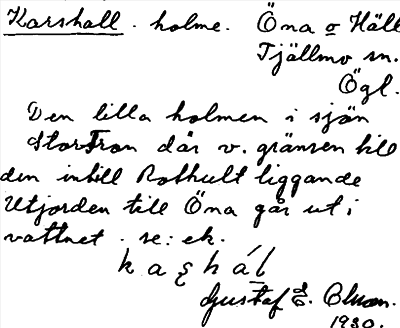 Karshall. holme. Öna o Häll
Tjällmo sn.
Ögl.
Den lilla holmen i sjön
StorFron där v. gränsen till
den intill Rothult liggande
Utjorden till Öna går ut i
vattnet. se: ek.
Gustaf E.
1930.